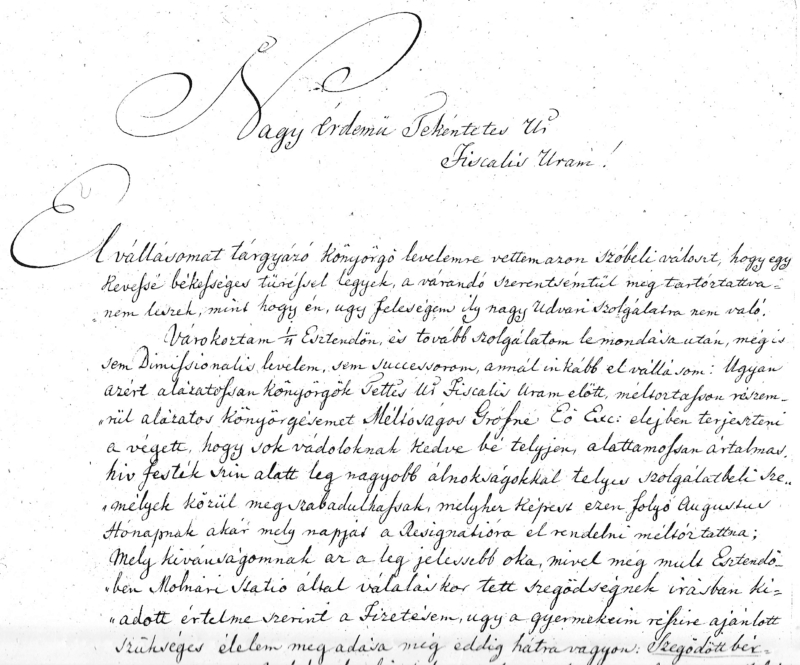 Nagy Érdemü Tekéntetes Ur
Fiscalis Uram!
El vállásomat tárgyázó könyörgő levelemre vettem azon szóbeli választ, hogy egy
kevessé békességes türéssel légyek, a várandó szerentsémtül meg tartóztattva-
nem leszek, mint hogy én, ugy feleségem ily nagy Udvari szolgálatra nem való.
Várokoztam 1/4 Esztendőn, és tovább szolgálatom le mondása után, még is
sem Dimissionalis levelem, sem successorom, annál inkább el vállásom: Ugyan
azért alázatossan könyörgök Tettes Ur Fiscalis Uram előtt, méltoztasson részem-
rül alázatos könyörgésemet Méltóságos Grófné Eő Exc: elejben terjeszteni
a végett, hogy sok vádoloknak kedve bé telyjen, alattamossan ártalmas,
hiv festék szin alatt leg nagyobb álnokságokkal telyes szolgálatbeli Sze-
mélyek közül meg szabadulhassak, melyhez képest ezen folyó Augustus
Honapnak akár mely napját a Resignatióra el rendelni méltóztattna;
Mely kivánságomnak az a leg jelessebb oka, mivel még mult Esztendő-
ben Molnári Statio által válaláskor tett szegődségnek irásban ki-
adott értelme szerint a Fizetésem, ugy a gyermekeim részire ajánlott
szükséges élelem meg adása még eddig hátra vagyon: Szegődött bér-